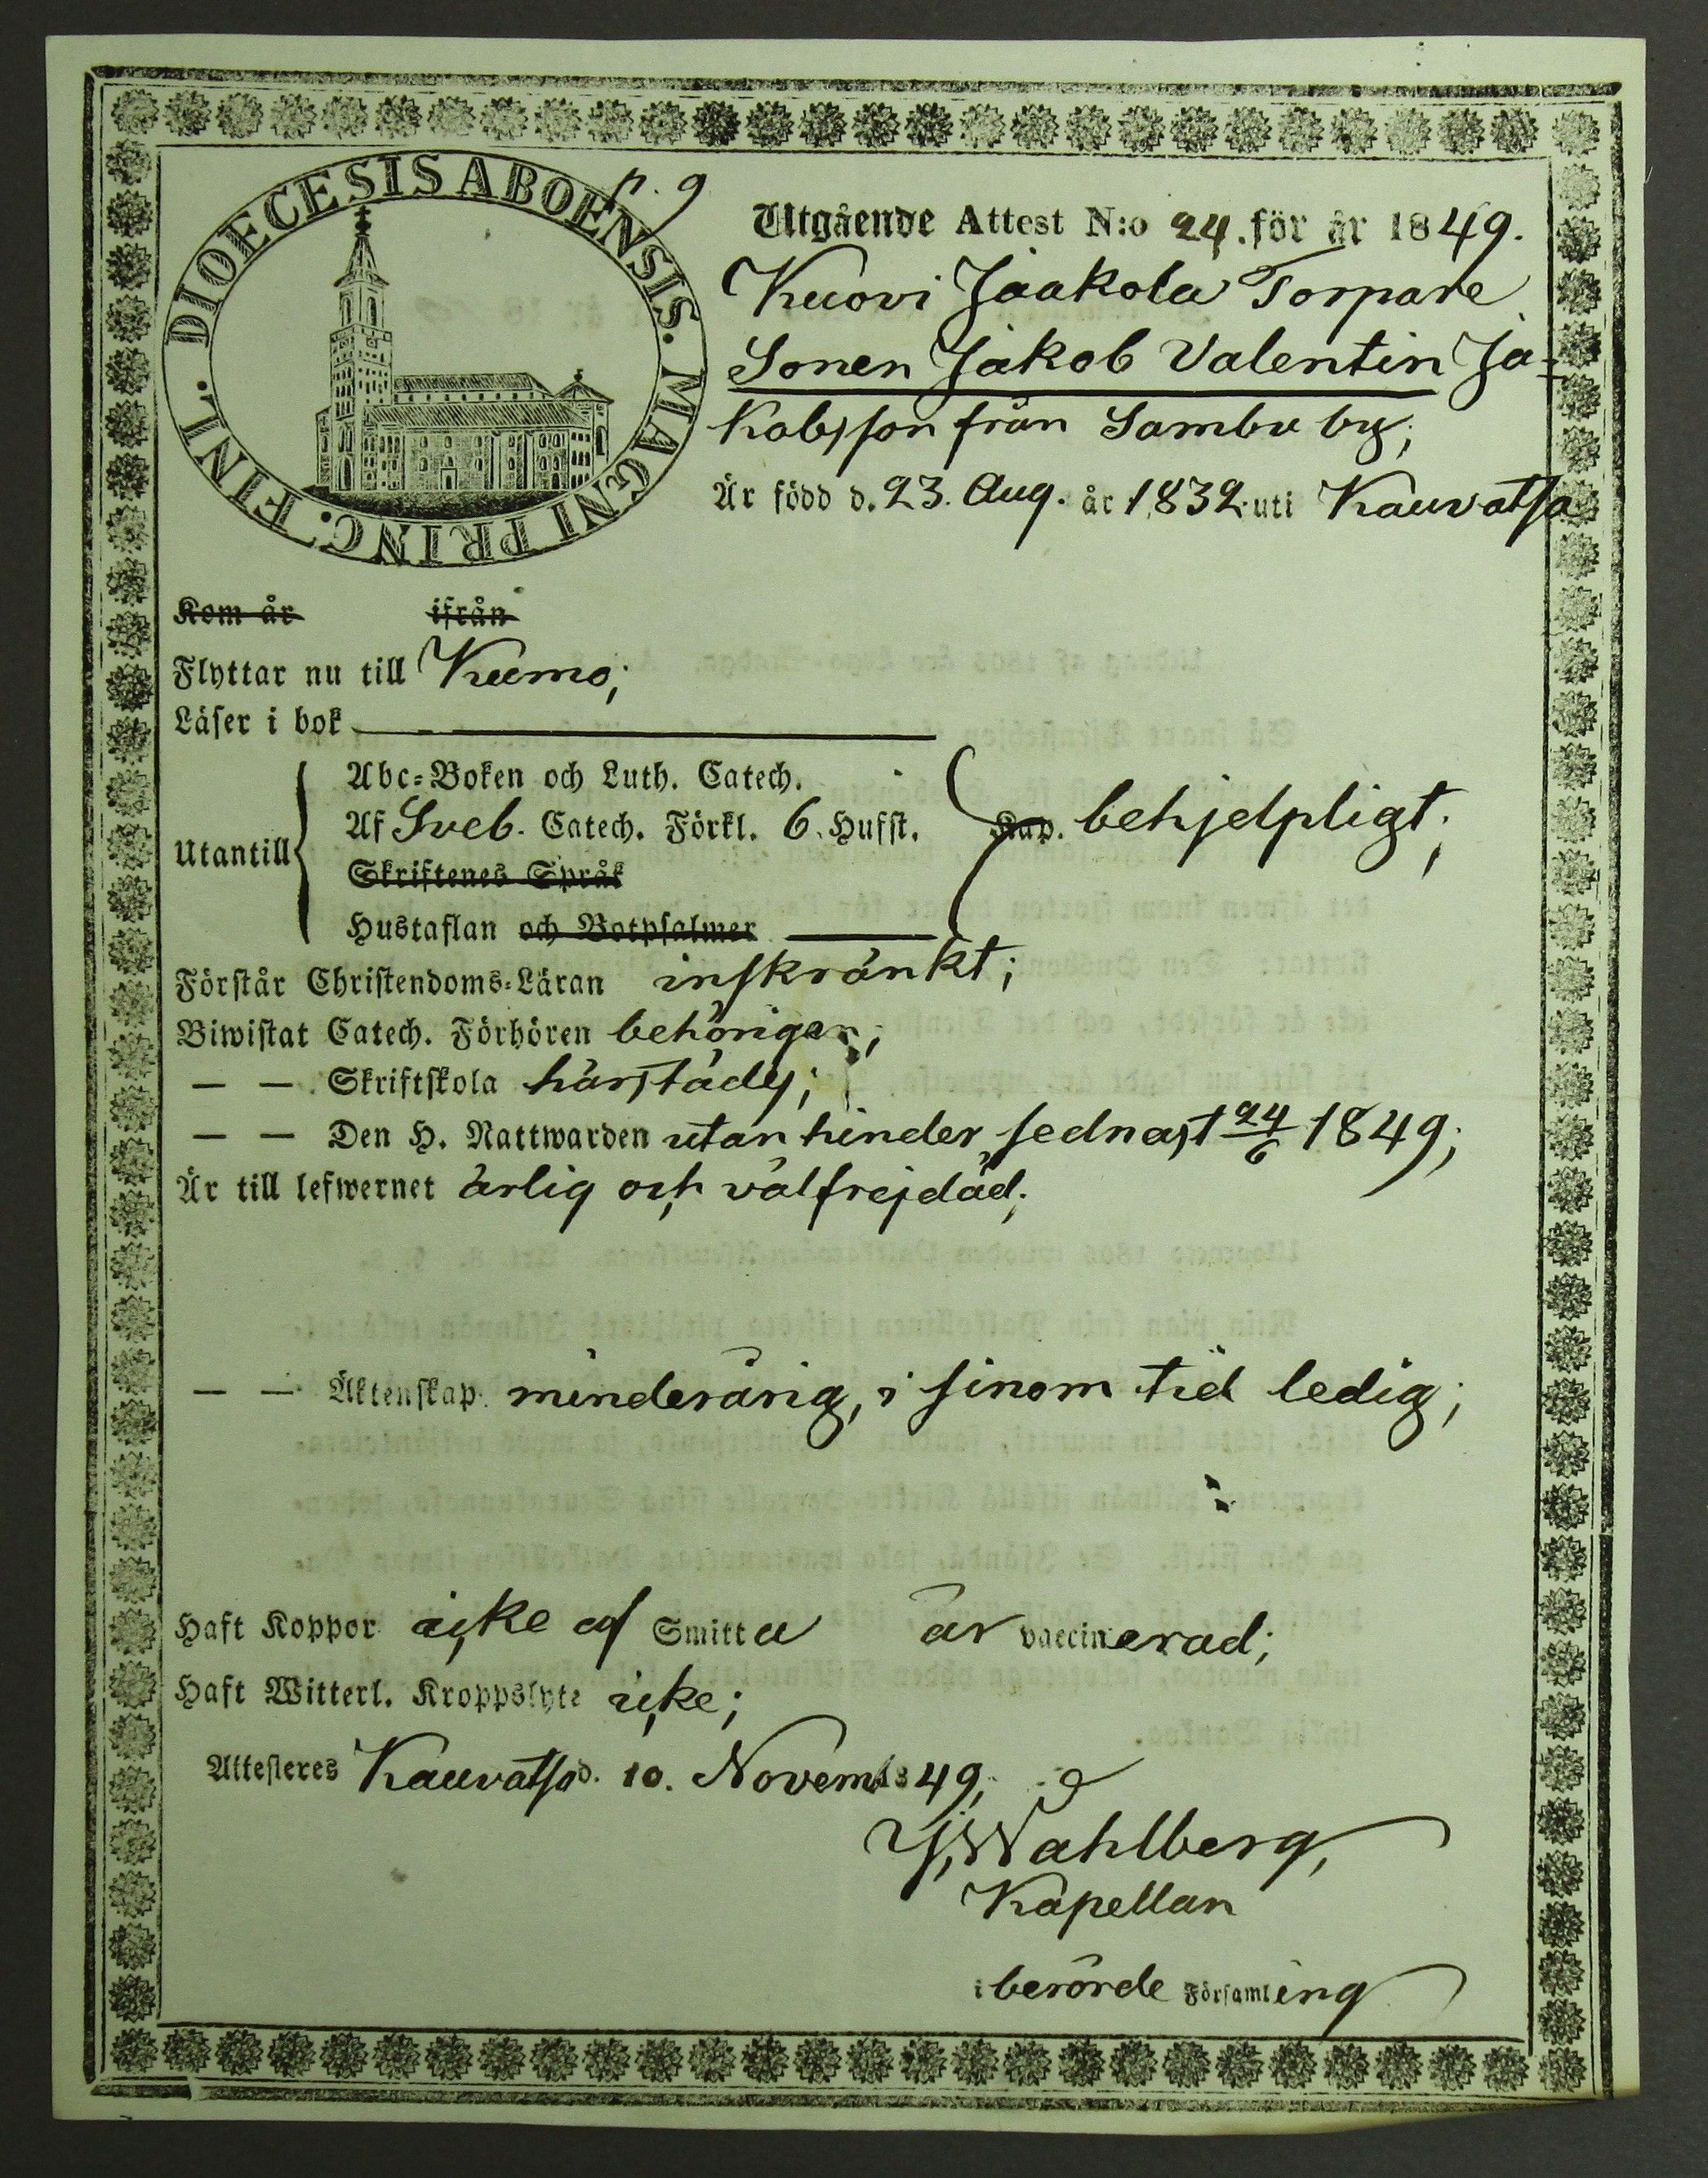 DIOECESIS ABOENSIS. MAGNI PRINC. FINL.
p. 9
Utgående Attest N:o 24. för år 1849.
Kuovi Jaakola Torpare
Sonen Jakob Valentin Ja-
kobsson från Sambu by;
Är född d. 23. Aug. år 1832 uti Kauvatsa
Kom år ifrån
Flyttar nu till Kumo;
Läser i bok
Utantill
Abc-Boken och Luth. Catech.
Af Sveb. Catech. Förkl. 6. Hufst. Kap. behjelpligt;
Skriftenes Språk
Hustaflan och Botpsalmer
Förstår Christendoms-Läran inskränkt;
Biwistat Catech. Förhören behörigen;
— — Skriftskola härstädes;
— — Den H. Nattwarden utan hinder sednast 24/6 1849;
Är till lefwernet ärlig och välfrejdad;
— — Äktenskap minderårig, i sinom tid ledig;
Haft Koppor icke af Smitta är vaccinerad;
Haft Witterl. Kroppslyte icke;
Attesteres Kauvatsa d. 10. Novem 1849,
Wahlberg,
Kapellan
i berörde Församling